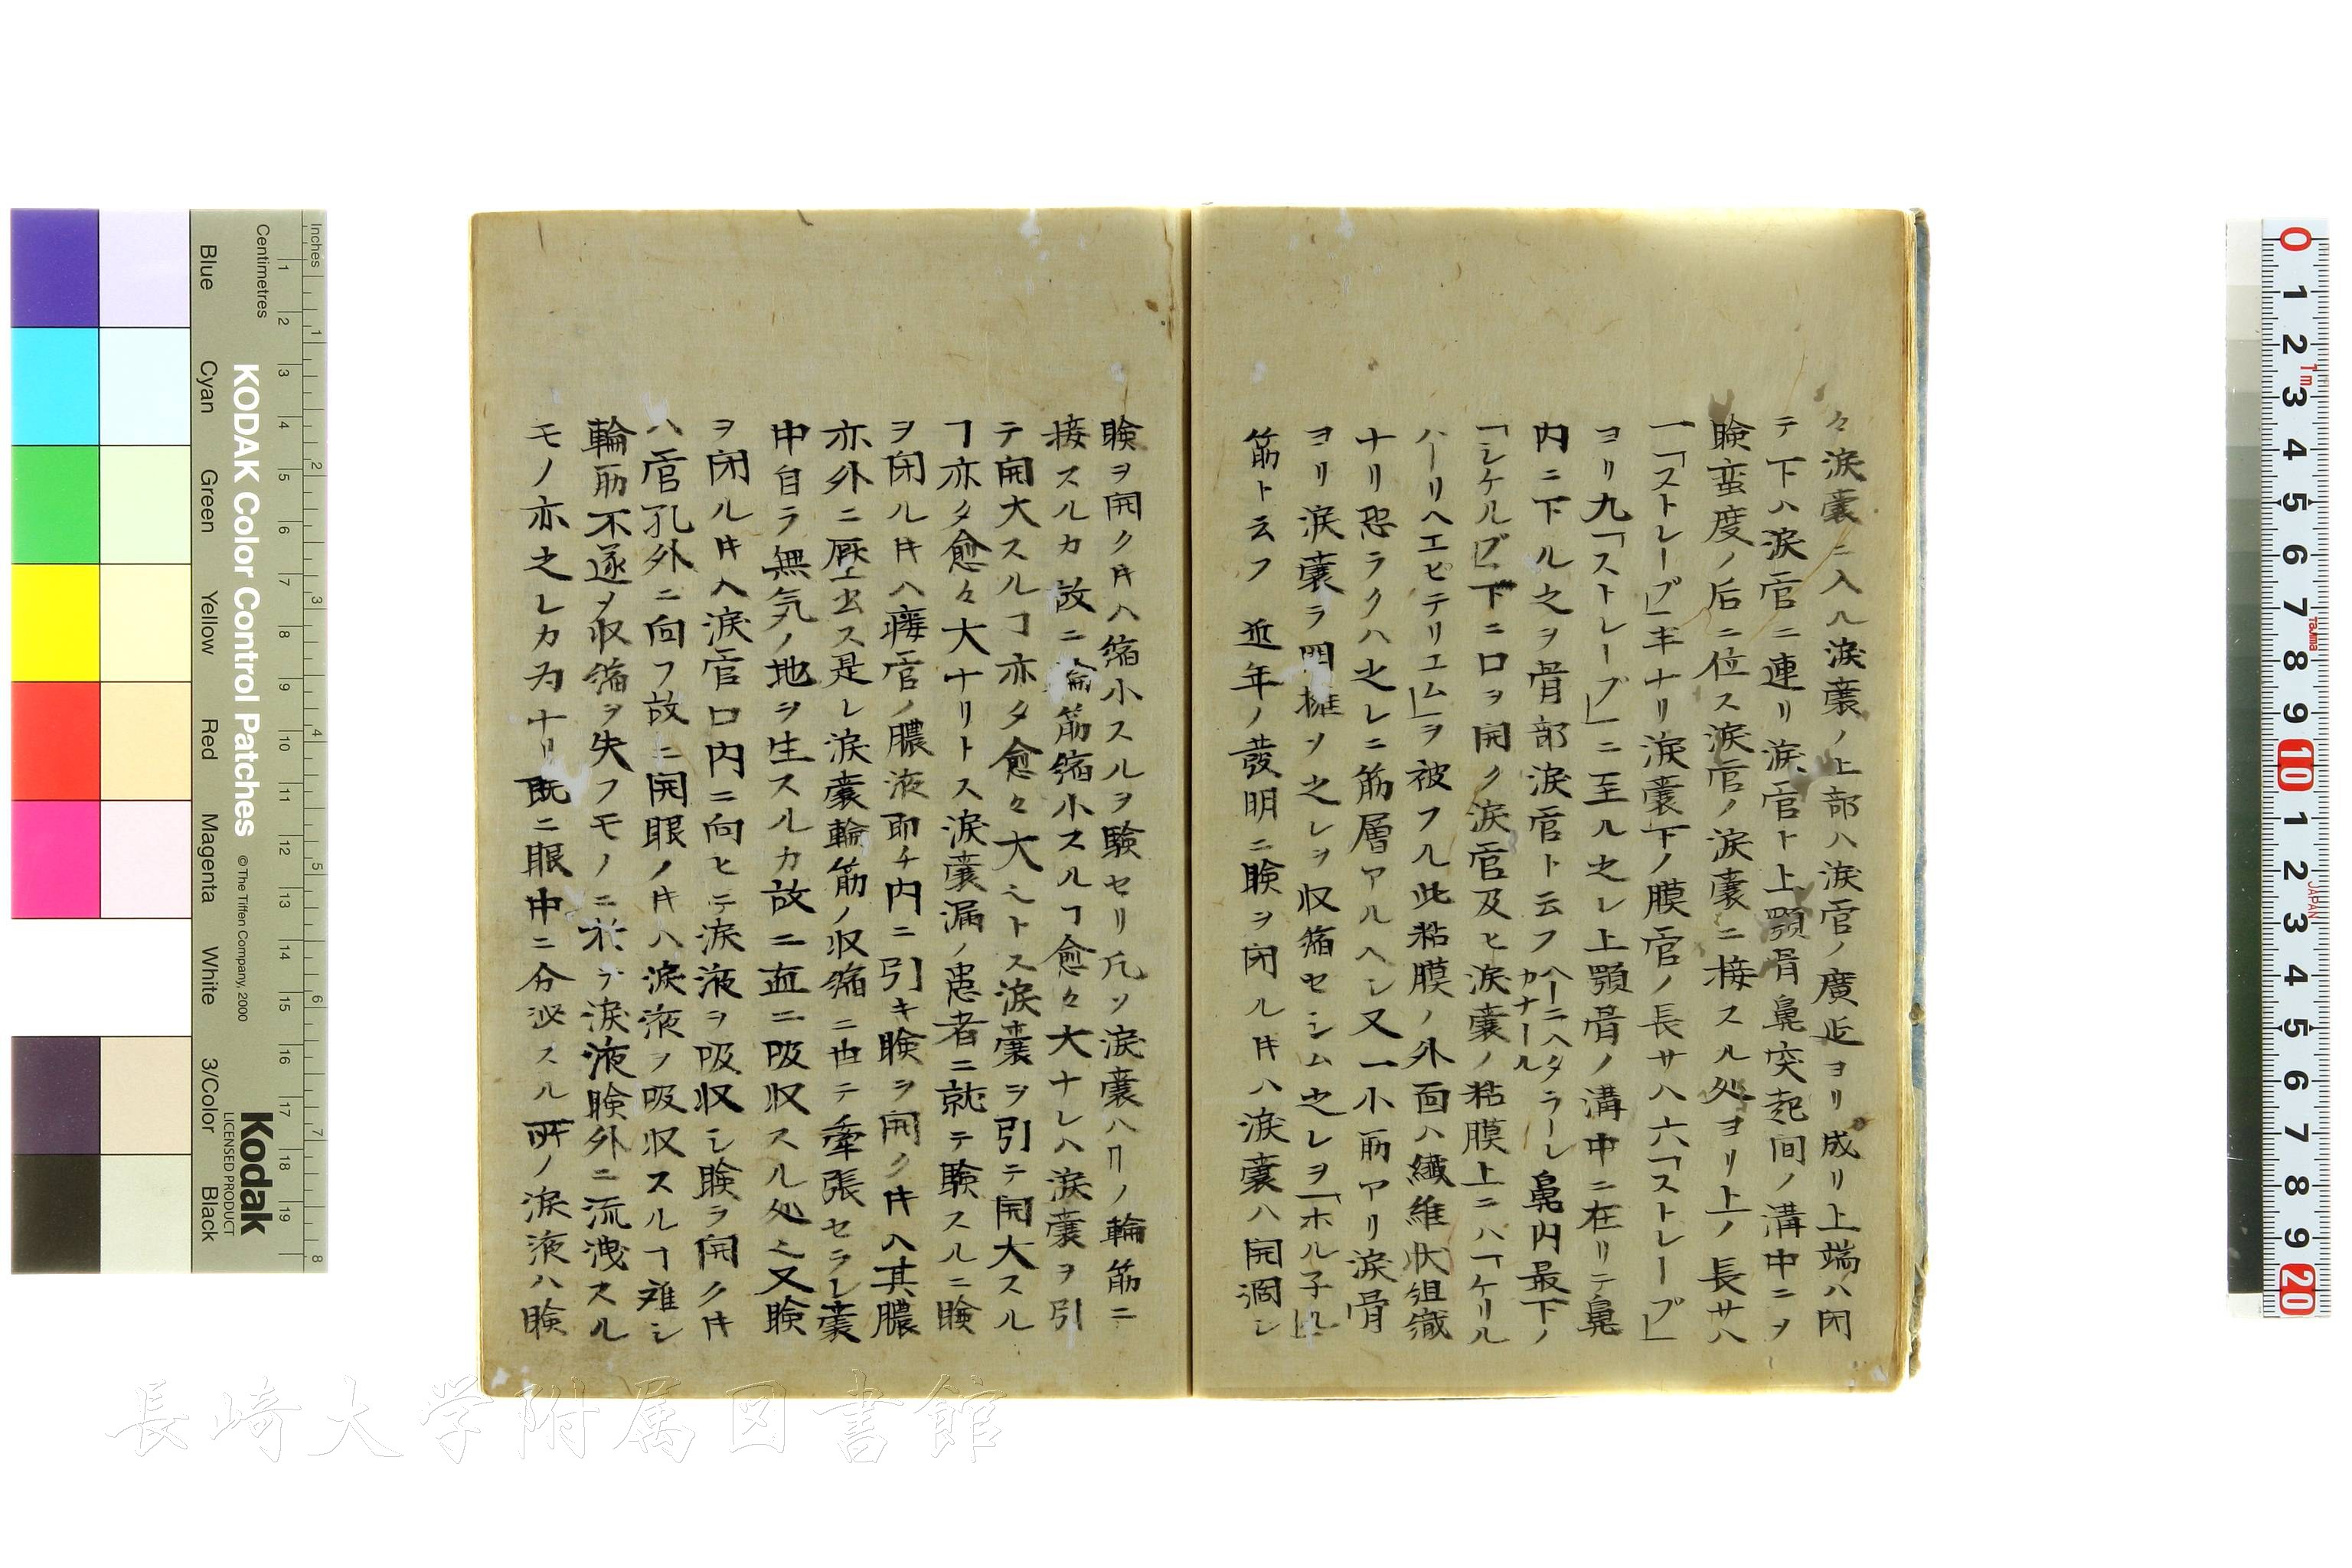 々涙嚢ニ入ル涙嚢ノ上部ハ涙管ノ廣延ヨリ成リ上端ハ閉
テ下ハ涙管ニ連リ涙管ト上顎骨鼻突起间ノ溝中ニヲ
瞼蛮度ノ后ニ位ス涙管ノ涙嚢ニ接スル処ヨリ上ノ長サハ
一「ストレープ」半ナリ涙嚢下ノ膜管ノ長サハ六「ストレープ」
ヨリ九「ストレープ」ニ至ル之レ上顎骨ノ溝中ニ在リテ鼻
内ニ下ル之ヲ骨部涙管ト云フ
ヘーニヘタラーレ
カナール
鼻内最下ノ
「シケルプ」下ニ口ヲ開ク涙管及ヒ涙嚢ノ粘膜上ニハ「ケリル
ハーリヘエピテリエム」ヲ被フル此粘膜ノ外面ハ纎維状組織
ナリ恐ラクハ之レニ筋層アルヘシ又一小筋アリ涙骨
ヨリ涙嚢ヲ擁ツ之レヲ収縮セシム之レヲ「ホル子ル」
筋ト云フ 近年ノ發明ニ瞼ヲ闭ルキハ涙嚢ハ開濶シ
瞼ヲ開クキハ縮小スルヲ験セリ凡ソ涙嚢ハ ノ輪筋ニ
接スルカ故ニ輪筋縮小スルヿ愈々大ナレハ涙嚢ヲ引
テ開大スルヿ亦タ愈々大シトス涙嚢ヲ引テ開大スル
ヿ亦タ愈々大ナリトス涙嚢漏ノ患者ニ就テ験スルニ瞼
ヲ闭ルキハ瘻管ノ膿液即チ内ニ引キ瞼ヲ開クキハ其膿
亦外ニ厭出ス是レ涙嚢輪筋ノ収縮ニ由テ牽張セラレ嚢
中自ラ無気ノ地ヲ生スルカ故ニ血ニ吸収スル処之又瞼
ヲ闭ルキハ涙管口内ニ向ヒテ涙液ヲ吸収シ瞼ヲ開クキ
ハ管孔外ニ向フ故ニ開眼ノキハ涙液ヲ吸収スルヿ难シ
輪筋不遂ノ収縮ヲ失フモノニ於テ涙液瞼外ニ流洩スル
モノ亦之レカ为ナリ既ニ眼中ニ分泌スル所ノ涙液ハ瞼
長崎大学附属図書館
Inches
Centimetres
KODAK Color Control Patches
© The Tiffen Company, 2000
Kodak
LICENSED PRODUCT
Blue
Cyan
Green
Yellow
Red
Magenta
White
3/Color
Black
1 2 3 4 5 6 7 8 9 10 11 12 13 14 15 16 17 18 19
1 2 3 4 5 6 7 8
0 1 2 3 4 5 6 7 8 9 10 1 2 3 4 5 6 7 8 9 20
1m
Tajima
JAPAN